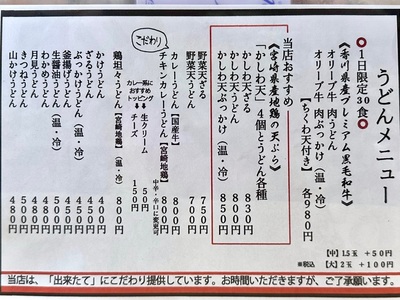 うどんメニュー
◎1日限定30食◎
《香川県産プレミアム黒毛和牛》
オリーブ牛 肉うどん
オリーブ牛 肉ぶっかけ（温・冷）
【ちくわ天付き】 各980円
当店おすすめ
《宮崎県産地鶏の天ぷら》
「かしわ天」4個とうどん各種
かしわ天うどん 800円
かしわ天ざる 830円
かしわ天ぶっかけ（温・冷） 850円
野菜天ざる 750円
野菜天うどん 700円
こだわり
カレーうどん【国産牛】 800円
チキンカレーうどん【宮崎地鶏】 800円
中辛・辛口に変更可
カレー系におすすめトッピング
生クリーム 50円
チーズ 150円
鶏坦々うどん【宮崎地鶏】（温・冷） 800円
かけうどん 400円
ざるうどん 450円
ぶっかけうどん（温・冷）
釜揚げうどん
生醤油うどん（温・冷）
わかめうどん
月見うどん
きつねうどん
山かけうどん
【中】1.5玉 +50円
【大】2玉 +100円
※税込
当店は、「出来たて」にこだわり提供しています。お時間いただきますが、ご了承願います。